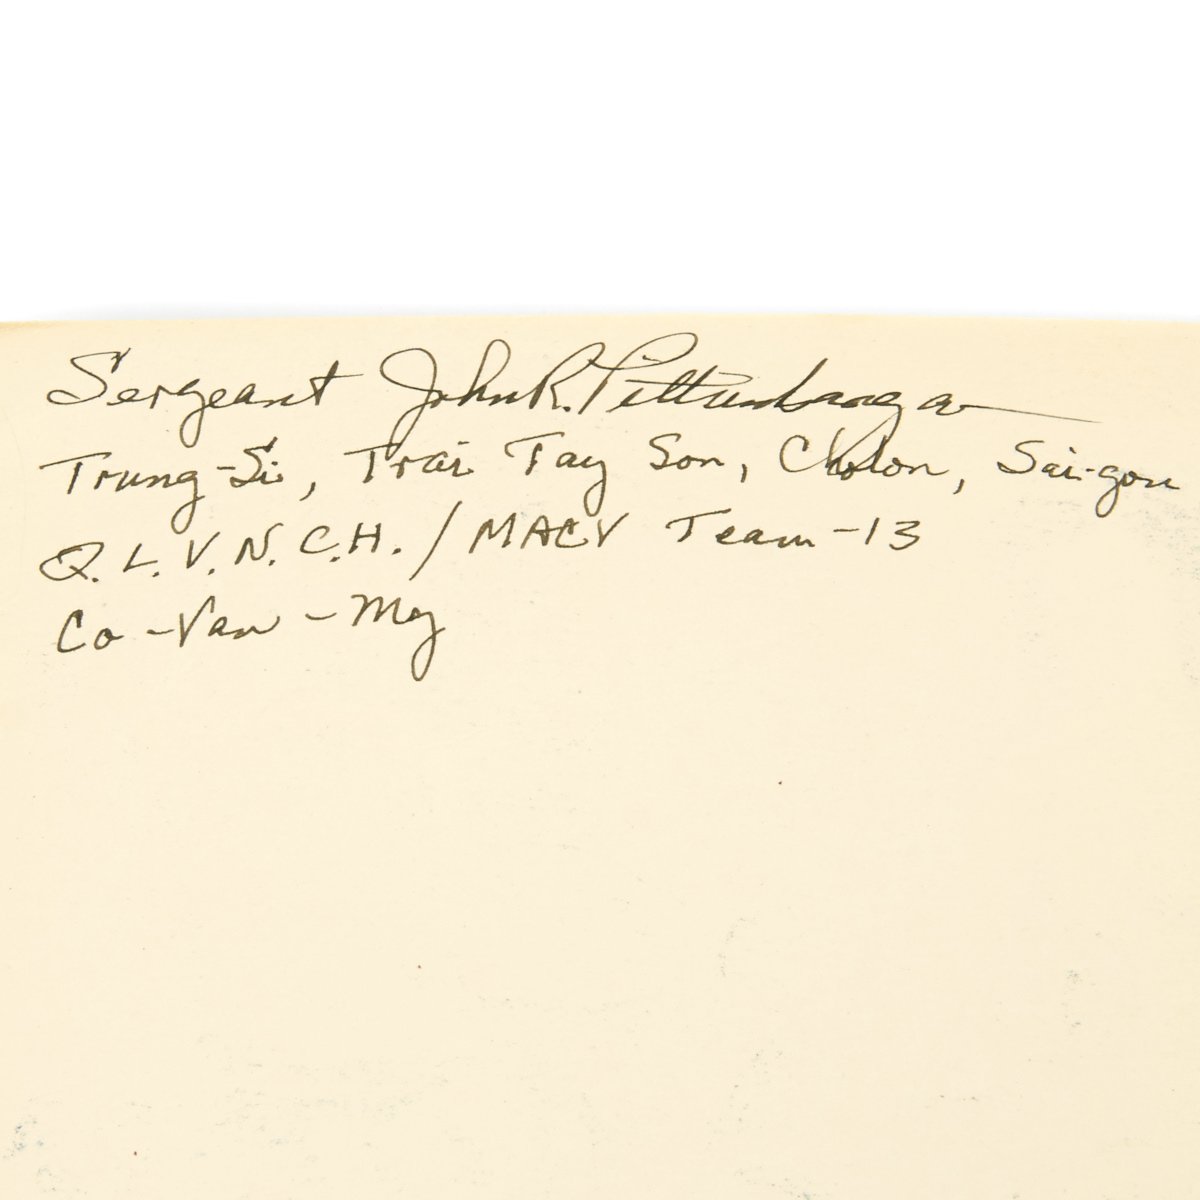 Sergeant John R.
Trung-Si, Trai Tay Son, Cholon, Sai-gon
Q.L.V.N.C.H. / MACV Team-13
Co-Van-My